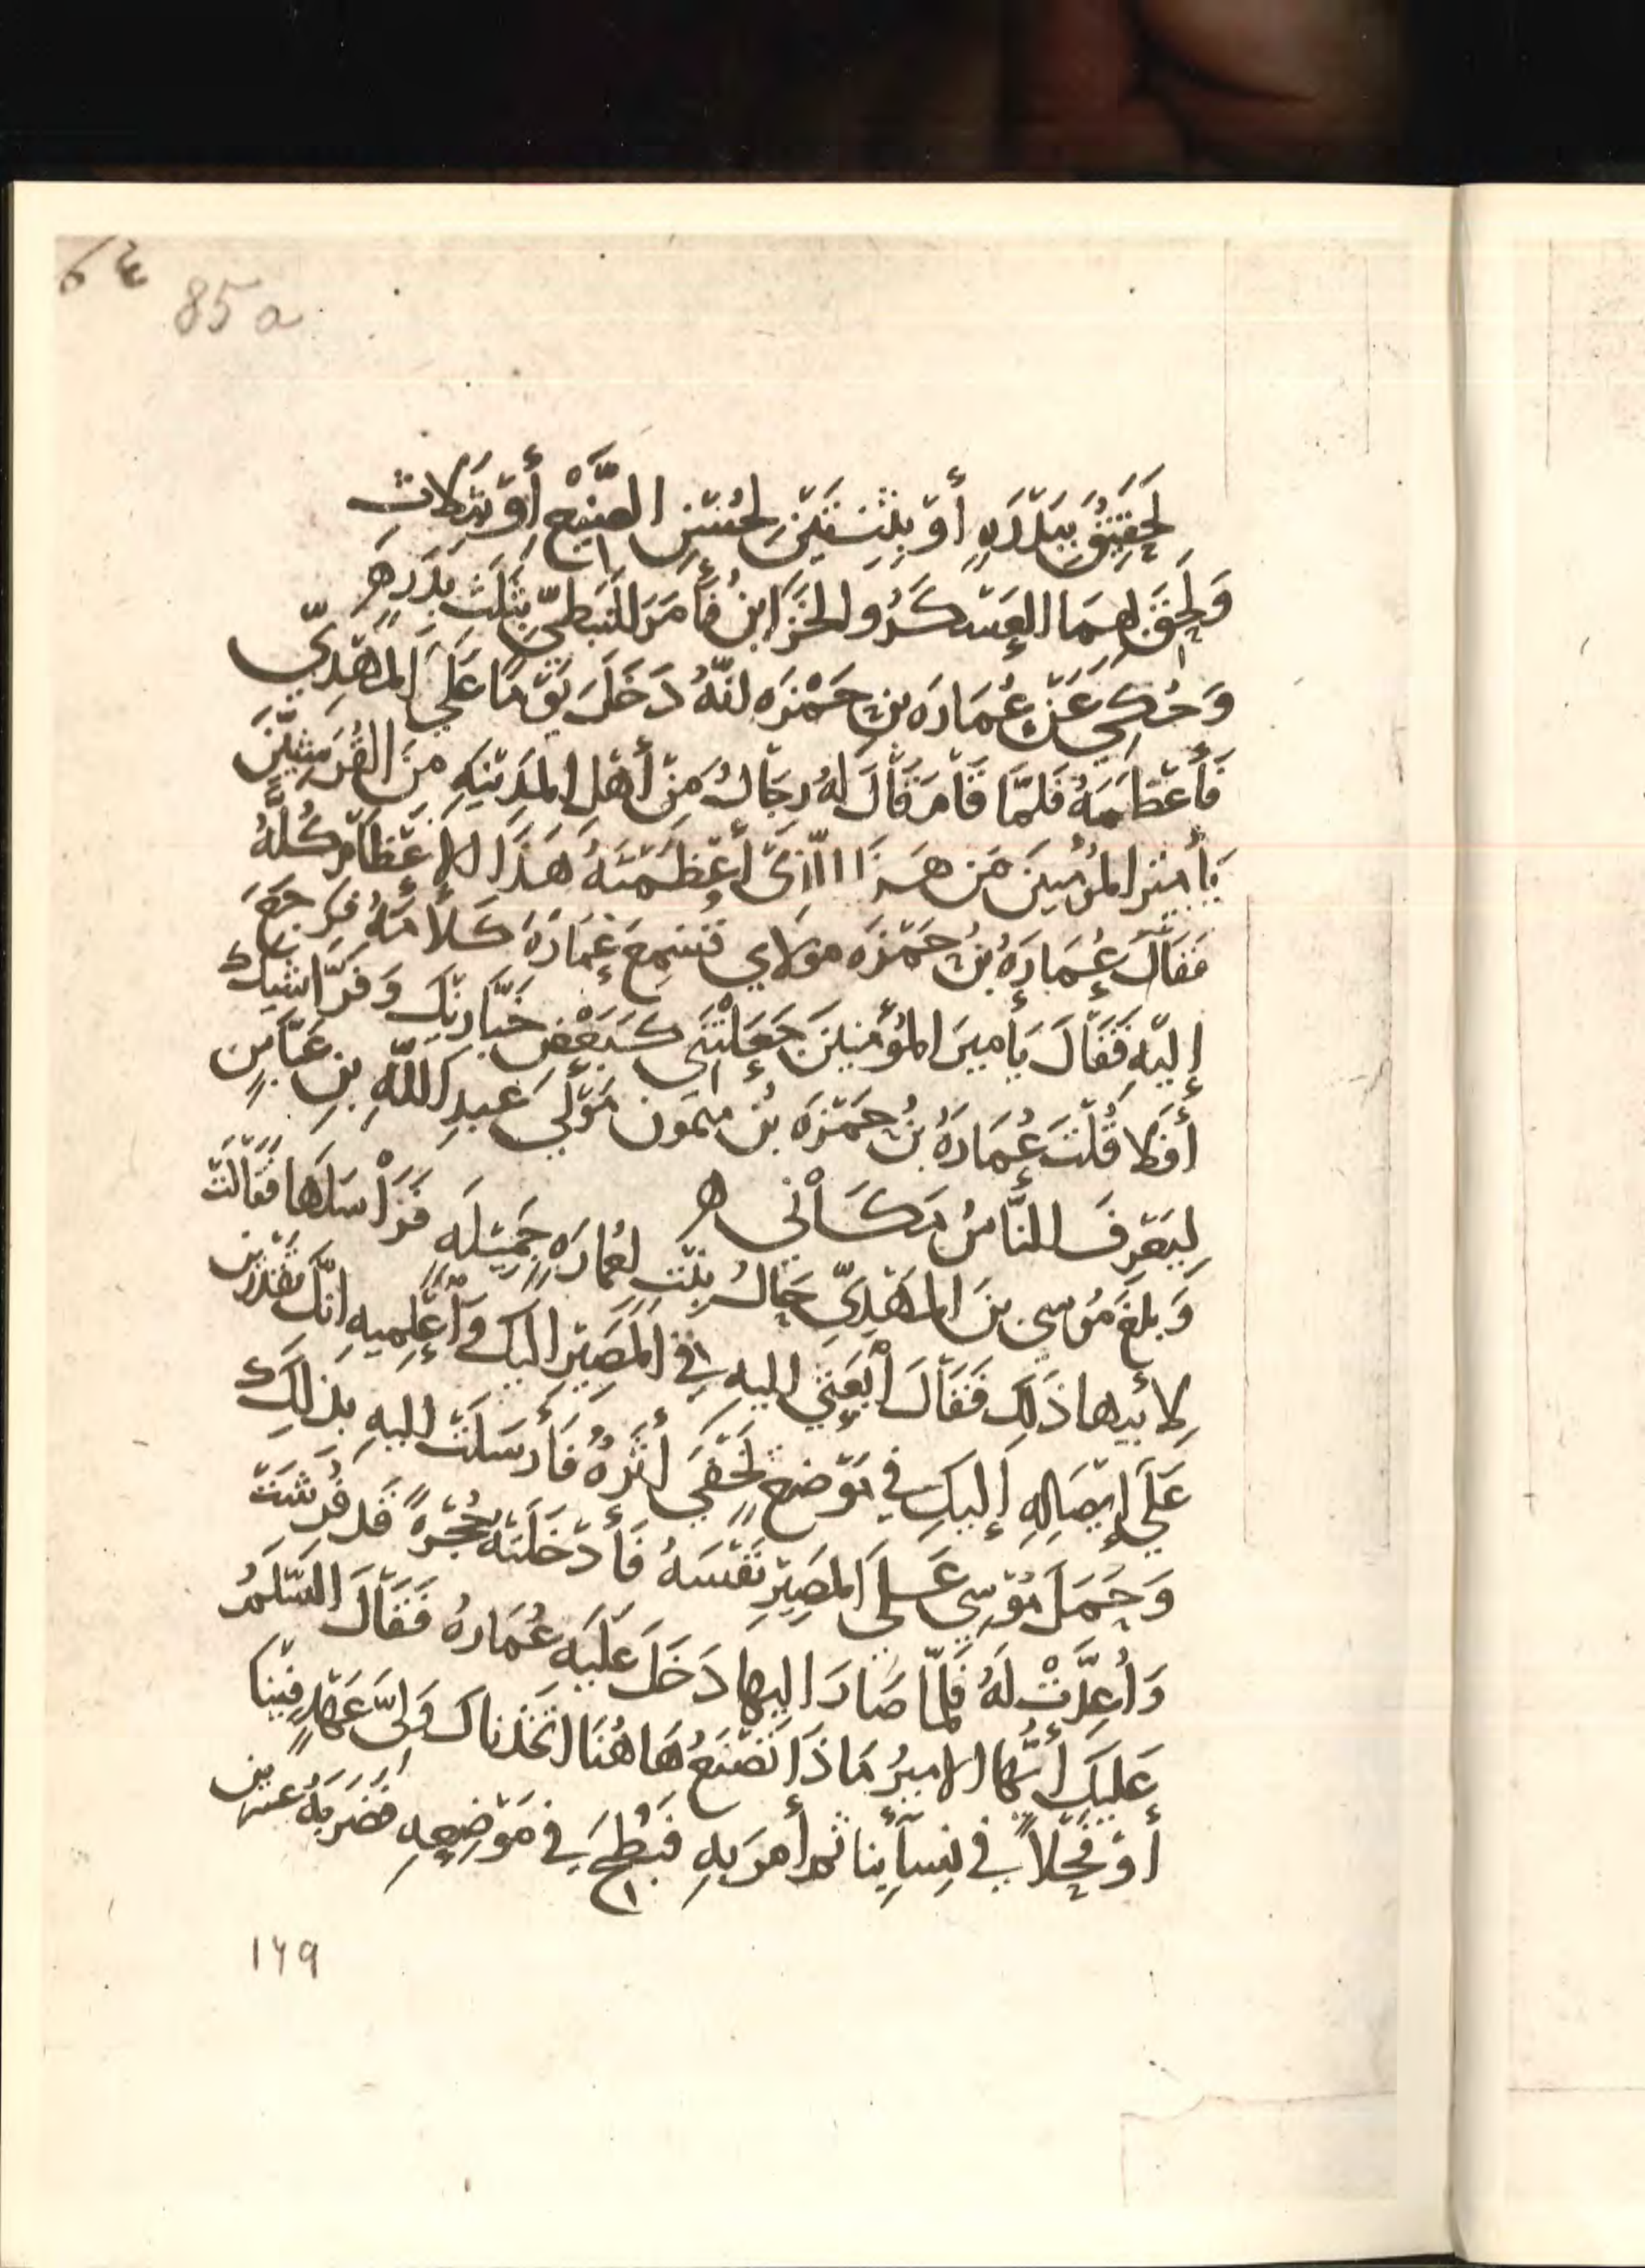 ٦٤
85a
لَحَقِيقٌ بِبَدْرَهٍ أَوْ بِثِنْتَيْنِ لِحُسْنِ الصَّنِيْعِ أَوْ بِثَلاثِ
وَلَحِقَ بِهِمَا العَسْكَرُ والخَزَاينُ فَأَمَرَ للنَبَطِيّ بِثَلَثِ بِدَرٍ ه
وَحُكِيَ عَنْ عُمَارَه بنِ حَمْزَه انّهُ دَخَلَ يَوْمًا عَلَى المَهْدِيّ
فَأَعْظَمَهُ فَلَمَّا قَامَ قَالَ لهُ رِجَالٌ مِنْ أَهْلِ المَدِيْنهِ مِنَ القُرَشِيّيْنَ
يَأميْرَ المُؤْمنِيِنَ مَن هَذَا الّذِىْ أَعْظَمْتَهُ هَذَا الإِعْظَامَ كُلَّهُ
فَقَالَ عُمَارَهُ بْنُ حَمْزَه مولاي فَسَمِعَ عُمَارَهُ كَلَامَهُ فَرَجَعَ
إليْهِ فَقَالَ يَأميرَ المُؤْمِنينَ جَعَلْتَنِى كَبَعْضِ خَبَّازِيْكَ وَفَرَّاشيكَ
أفَلا قُلْتَ عُمَارَهُ بنُ حَمْزَه بْنِ ميمون مَوْلَي عبدِ اللّهِ بنِ عَبّاسٍ
لِيَعْرِفَ النَّاسُ مَكَانِي ه
وَبلغَ مُوسي بنَ المَهْدِيِّ جَمَالُ بِنْتٍ لِعُمارَهٍ جَمِيْلَهٍ فَرَاسَلَها فَقَالَتْ
لأبيها ذَلِكَ فَقَالَ ابْعَثِي اليهِ في المَصِيْرِ اليك وَأعْلِمِيهِ انّكَ تقْدِرين
عَلَي إيْصَالِهِ إليكِ في مَوْضعٍ يَخْفَي أثَرُهُ فَأرسَلَتْ اليهِ بذلكَ
وَحَمَلَ مُوْسِي عَلَى المَصِيْرِ نَفْسَهُ فَأدْخَلَتْهُ حُجْرَةً قد فُرِشَتْ
وَأُعِدَّتْ لَهُ فَلمّا صَارَ اليها دَخَلَ عَلَيْهِ عُمَارهُ فَقَالَ السّلَمُ
عَليكَ أيُّها الاميرُ مَاذَا تَصْنَعُ هَاهُنَا اتّخَذناكَ وَليَّ عَهْدٍ فِيْنا
أوْ فَحْلاً في نِسَآئِنا ثم أمَرَ بهِ فَبُطِحَ في مَوْضِعِهِ فضرَبهُ عشرين
١٦٩